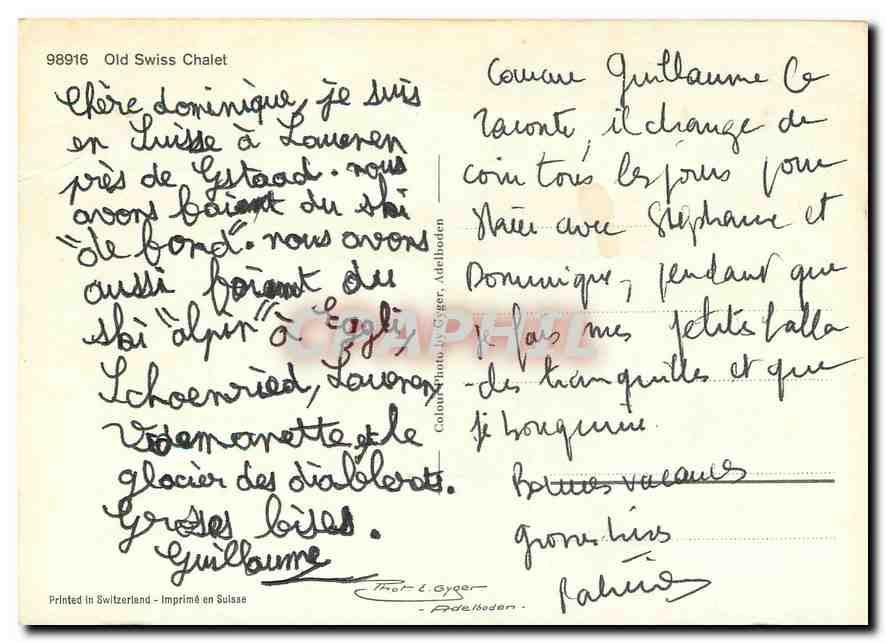 98916 Old Swiss Chalet
Chère dominique, je suis
en Suisse à Lauenen
près de Gstaad. nous
avons du ski
"de fond". nous avons
aussi du
ski "alpin" à Eggli,
Schoenried, Lauenen,
Videmanette et le
glacier des diablerets.
Groses bises.
Guillaume
Colour Photo by Gyger, Adelboden
Comme Guillaume le
raconte, il change de
coin tous les jours pour
skier avec Stéphane et
Dominique, pendant que
je fais mes petites balla
-des tranquilles et que
je bouquine.
Bonnes vacances
grosses bises
Phot. E. Gyger
- Adelboden -
Printed in Switzerland - Imprimé en Suisse
CPHIL